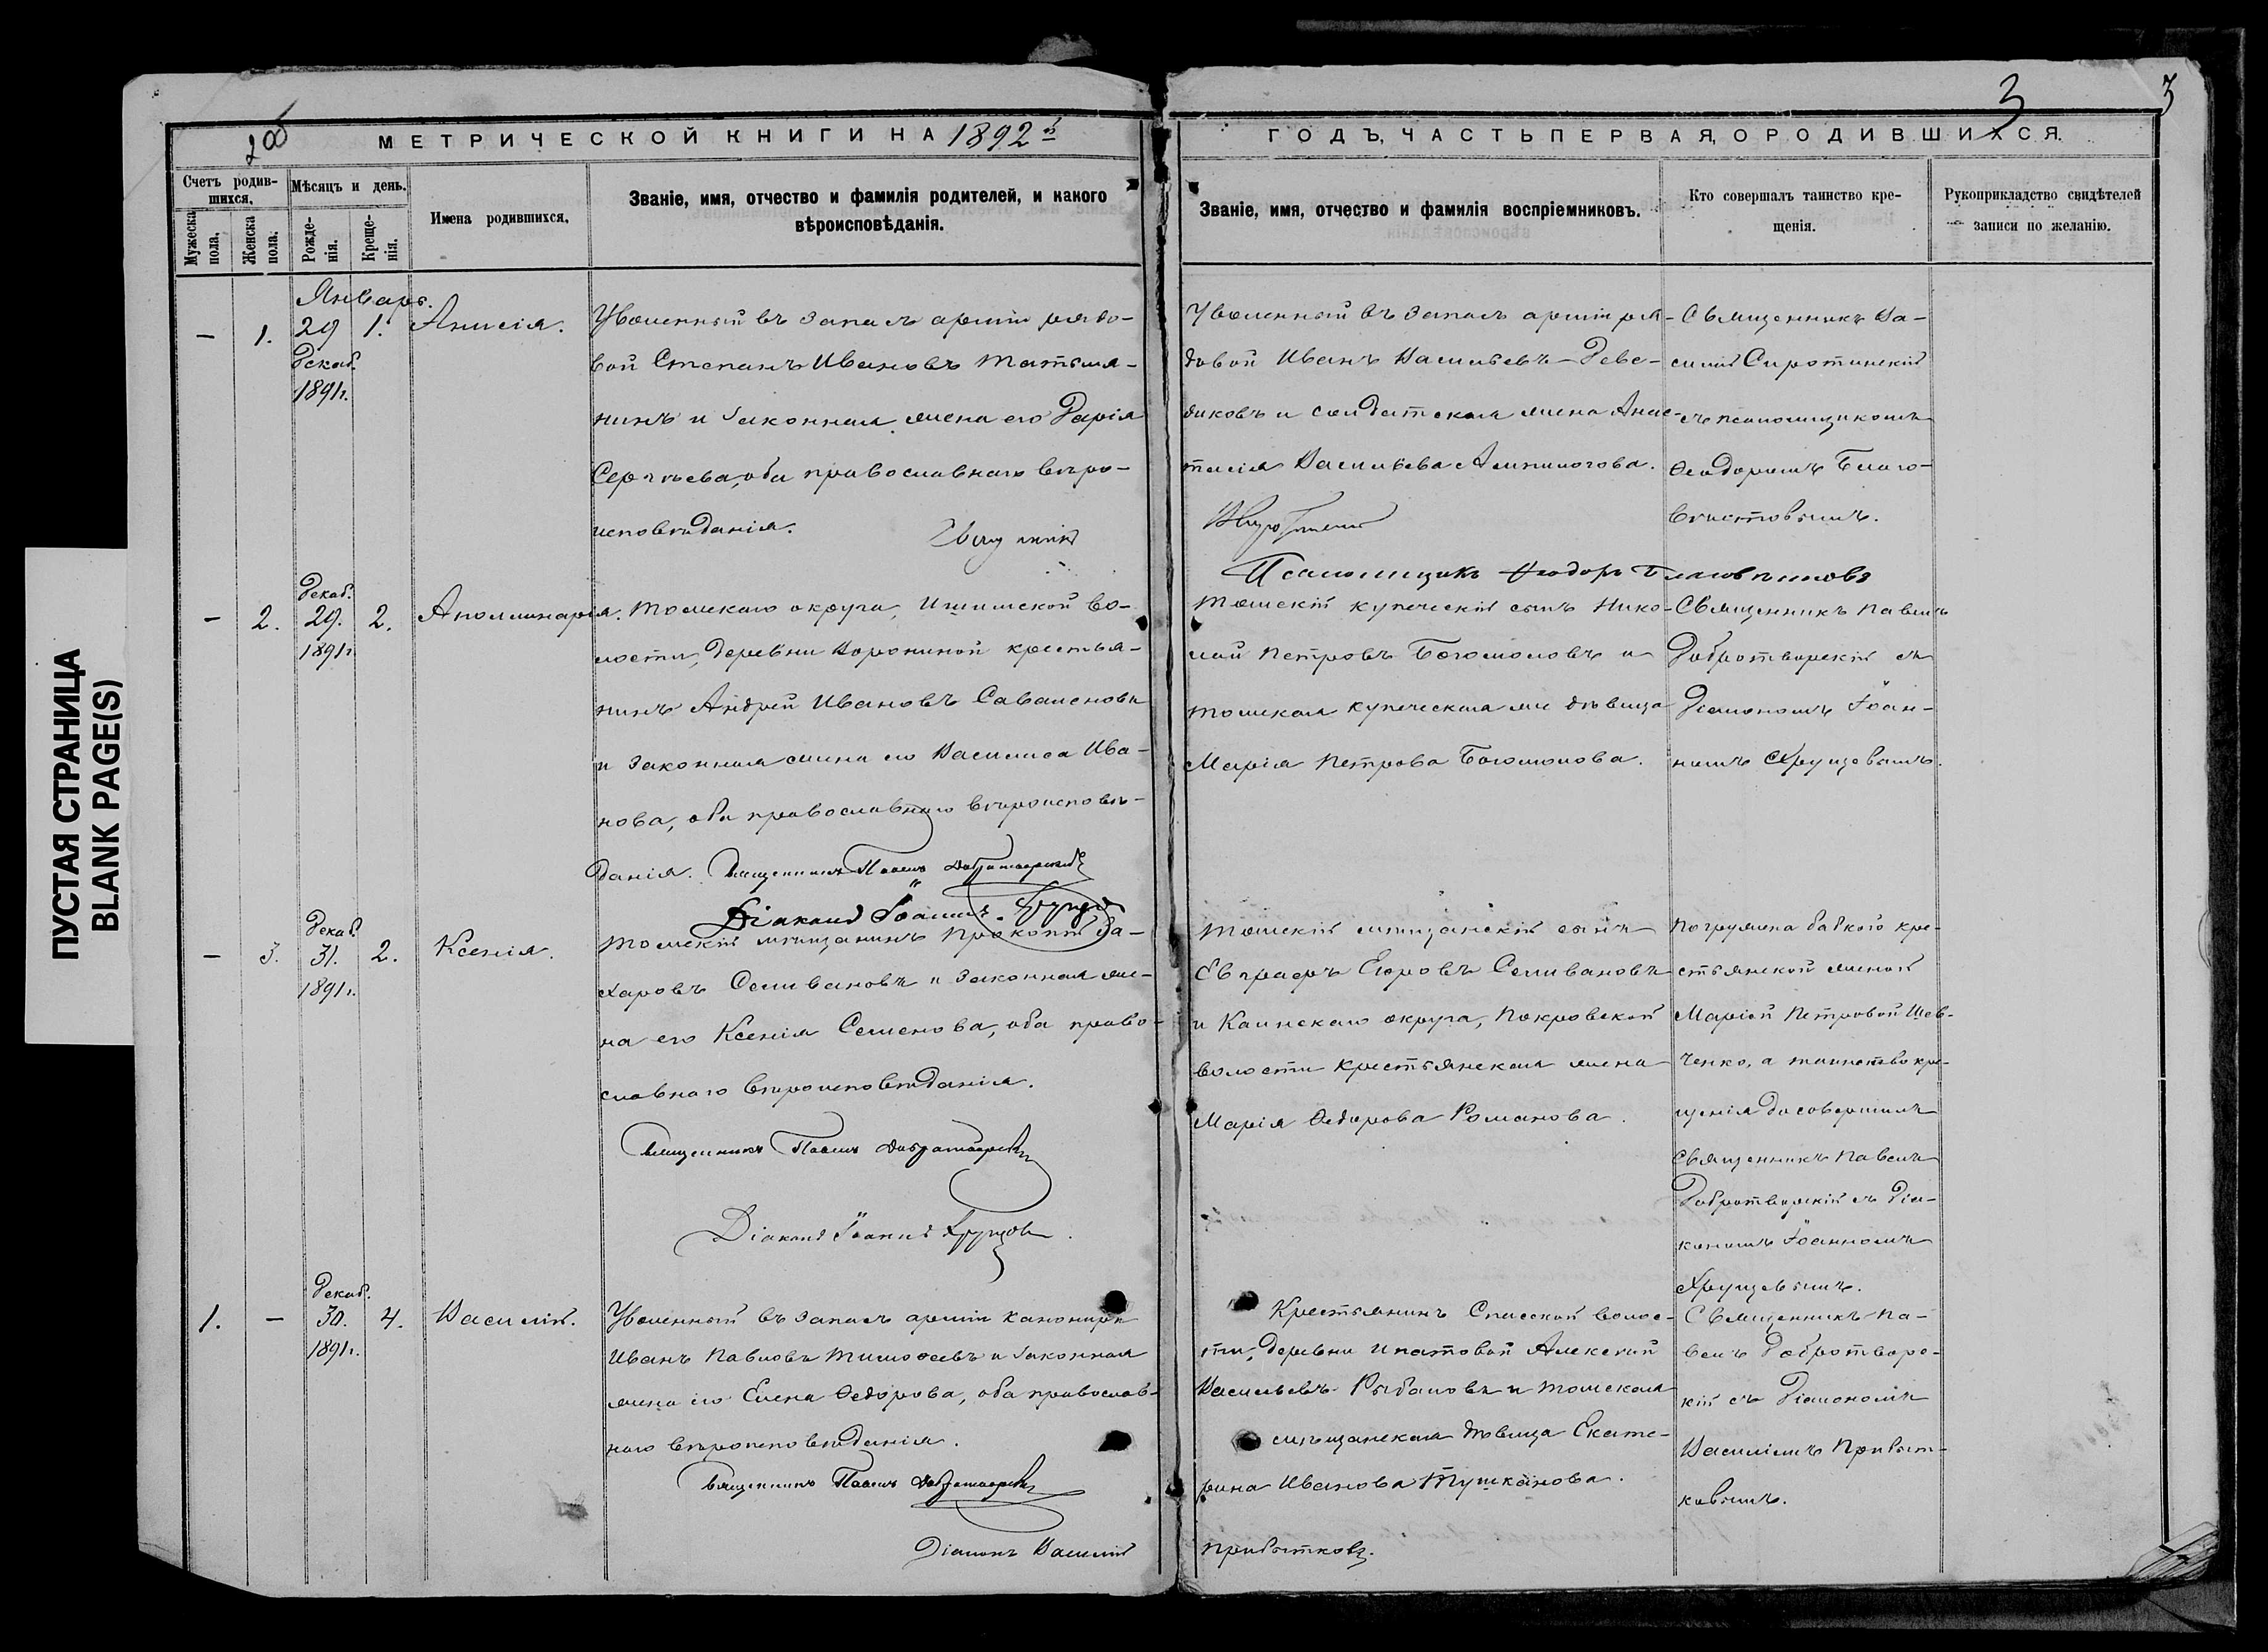 ПУСТАЯ СТРАНИЦА
BLANK PAGE(S)
2об
МЕТРИЧЕСКОЙ КНИГИ НА 1892 й
Счетъ родив-
шихся.
Мужеска
пола.
Женска
пола.
Мѣсяцъ и день.
Рожде-
нія.
Креще-
нія.
Имена родившихся.
Званіе, имя, отчество и фамилія родителей, и какого
вѣроисповѣданія.
3
3
ГОДЪ, ЧАСТЬ ПЕРВАЯ, О РОДИВШИХСЯ.
Званіе, имя, отчество и фамилія воспріемниковъ.
Кто совершалъ таинство кре-
щенія.
Рукоприкладство свидѣтелей
записи по желанію.
Январь.
— 1. 29 1. Анисія.
Декаб.
1891г.
Уволенный въ запасъ арміи рядо-
вой Степанъ Ивановъ Татья-
нинъ и законная жена его Дарія
Сергѣева, оба православнаго вѣро-
исповѣданія.
Уволенный въ запасъ арміи ря-
довой Иванъ Васильевъ
и солдатская жена Анас-
тасія Васильева
Священникъ Ва-
силій Сиротинскій
съ псаломщикомъ
Ѳеодоромъ Благо-
вѣстовымъ.
Псаломщикъ Ѳеодоръ Благовѣстовъ
Декаб.
— 2. 29. 2. Аполлинарія.
1891г.
Томскаго округа, Ишимской во-
лости, деревни Ворониной крестья-
нинъ Андрей Ивановъ
и законная жена его Василиса Ива-
нова, оба православнаго вѣроисповѣ-
данія. Священникъ Павелъ Добротворскій
Діаконъ Іоаннъ Хрущевъ
Томскій купеческій сынъ Нико-
лай Петровъ Богомоловъ и
томская купеческая дѣвица
Марія Петрова Богомолова.
Священникъ Павелъ
Добротворскій съ
Діакономъ Іоан-
номъ Хрущевымъ.
Декаб.
— 3. 31. 2. Ксенія.
1891г.
Томскій мѣщанинъ Прокопій За-
харовъ Селивановъ и законная же-
на его Ксенія Семенова, оба право-
славнаго вѣроисповѣданія.
Священникъ Павелъ Добротворскій
Діаконъ Іоаннъ Хрущовъ.
Томскій мѣщанскій сынъ
Евграфъ Егоровъ Селивановъ
и Каинскаго округа, Покровской
волости крестьянская жена
Марія Ѳедорова Романова.
Погружена бабкою кре-
стьянской женой
Маріей Петровой Шев-
ченко, а таинство кре-
щенія досовершилъ
Священникъ Павелъ
Добротворскій съ Діа-
кономъ Іоанномъ
Хрущевымъ.
Декаб.
1. — 30. 4. Василій.
1891г.
Уволенный въ запасъ арміи канониръ
Иванъ Павловъ Тимоѳеевъ и законная
жена его Елена Ѳедорова, оба православ-
наго вѣроисповѣданія.
Священникъ Павелъ Добротворскій
Діаконъ Василій Прибытковъ.
Крестьянинъ Спасской волос-
ти, деревни Ипатовой Алексѣй
Васильевъ Рыбаловъ и томская
мѣщанская дѣвица Екате-
рина Иванова Тушканова.
Священникъ Па-
велъ Добротворс-
кій съ Діакономъ
Василіемъ Прибыт-
ковымъ.